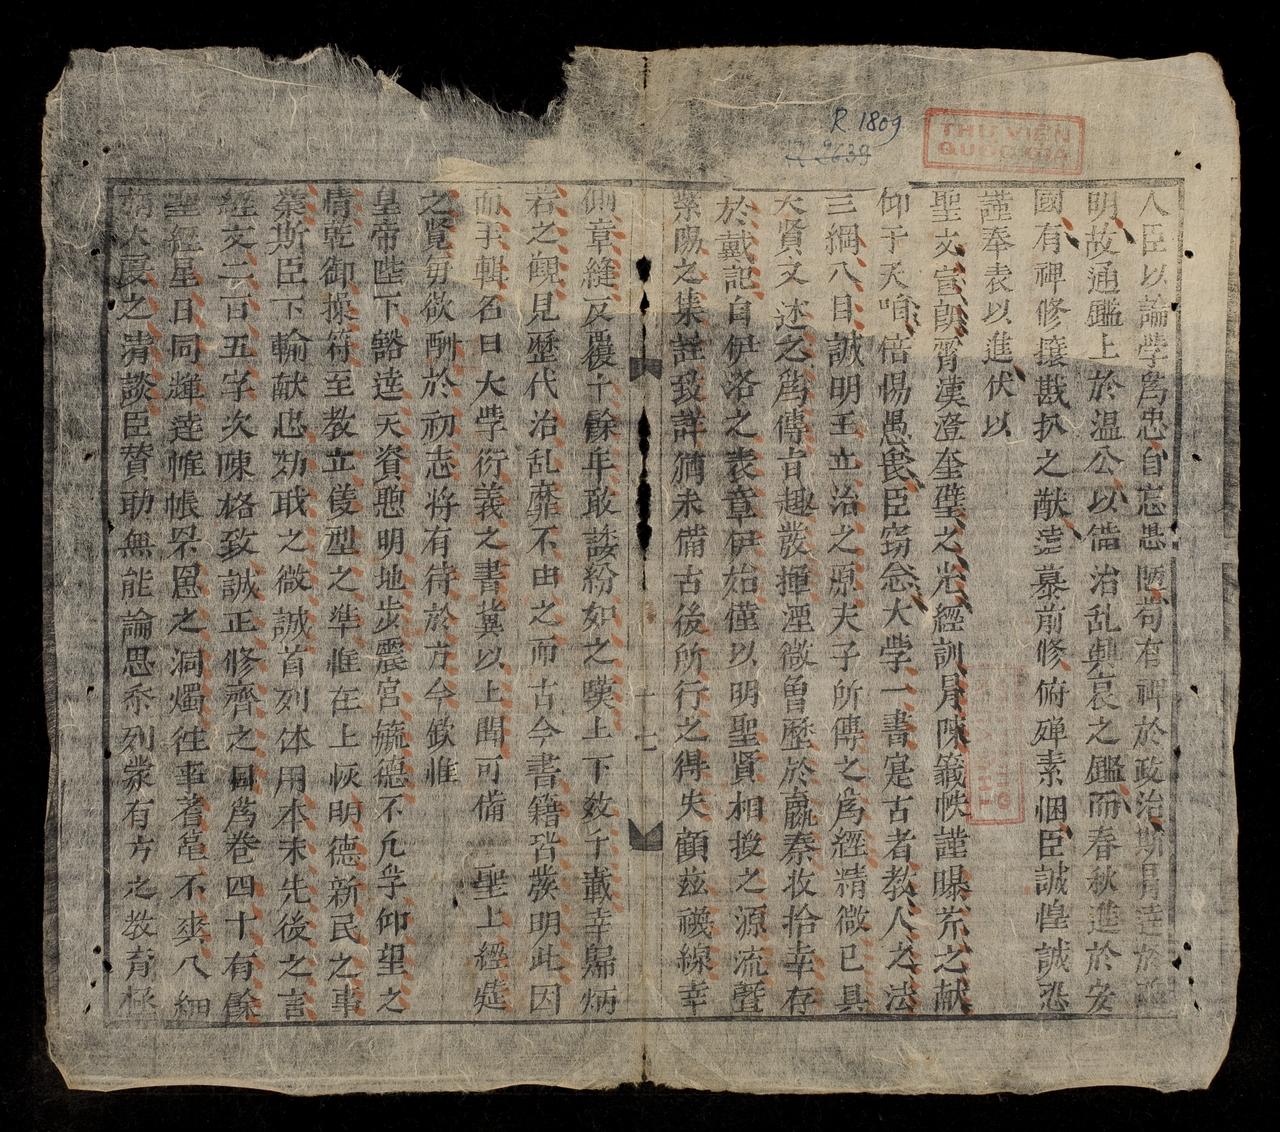 R.1809
R 2639
THƯ VIỆN
QUỐC GIA
人臣以論學爲忠自忘愚陋苟有裨於政治斯冐達於
明故通鑑上於温公以備治乱興哀之鑑而春秋進於安
國有裨修攘戡扒之猷逹慕前修俯殫素悃臣誠惶誠恐
謹奉表以進伏以
聖文宣朗霄漢澄奎璧之光經訓冐陳籤帙謹曝芹之献
仰于天咱倍惕愚衷臣窃念大學一書寔古者教人之法
三綱八目誠明王立治之原夫子所傳之爲經精微已具
大賢文述之爲傳旨趣發揮湮微魯歷於嬴秦收拾幸存
於戴記自伊洛之表章伊始僅以明聖賢相授之源流曁
紫陽之集註致詳猶未備古後所行之得失顧兹襪線幸
側章縫反覆十餘年敢諉紛如之嘆上下数千載幸歸炳
若之觀見歷代治乱靡不由之而古今書籍皆發明此因
而手輯名曰大學衍義之書冀以上聞可備 聖上經筵
之覽毎欲酬於初志将有待於方今欽惟
皇帝陛下豁達天資聦明地步震宮毓德不凡孚仰望之
情乾御操符至教立儀型之準惟在上恢明德新民之事
業斯臣下輸献忠効职之微誠首列体用本末先後之言
經文二百五字次陳格致誠正修齊之目爲卷四十有餘
聖經星日同輝逹帷帳罘罳之洞燭往事蓍龜不爽八細
旃大厦之清談臣賛助無能論思忝列蒙有方之教育極
十七